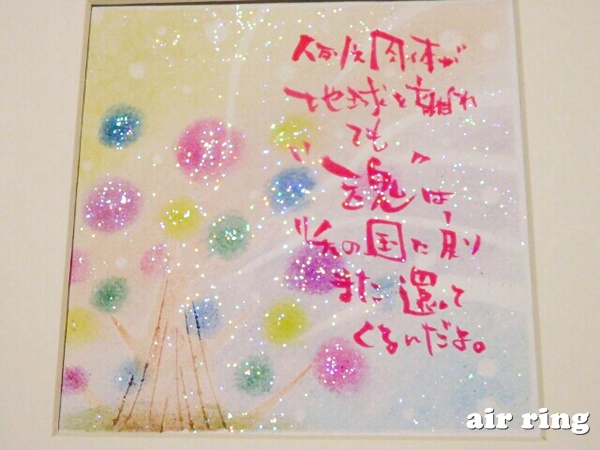 例え肉体が
地球を離れ
ても
"魂"は、
天の国に戻り
また還って
くるんだよ。
air ring